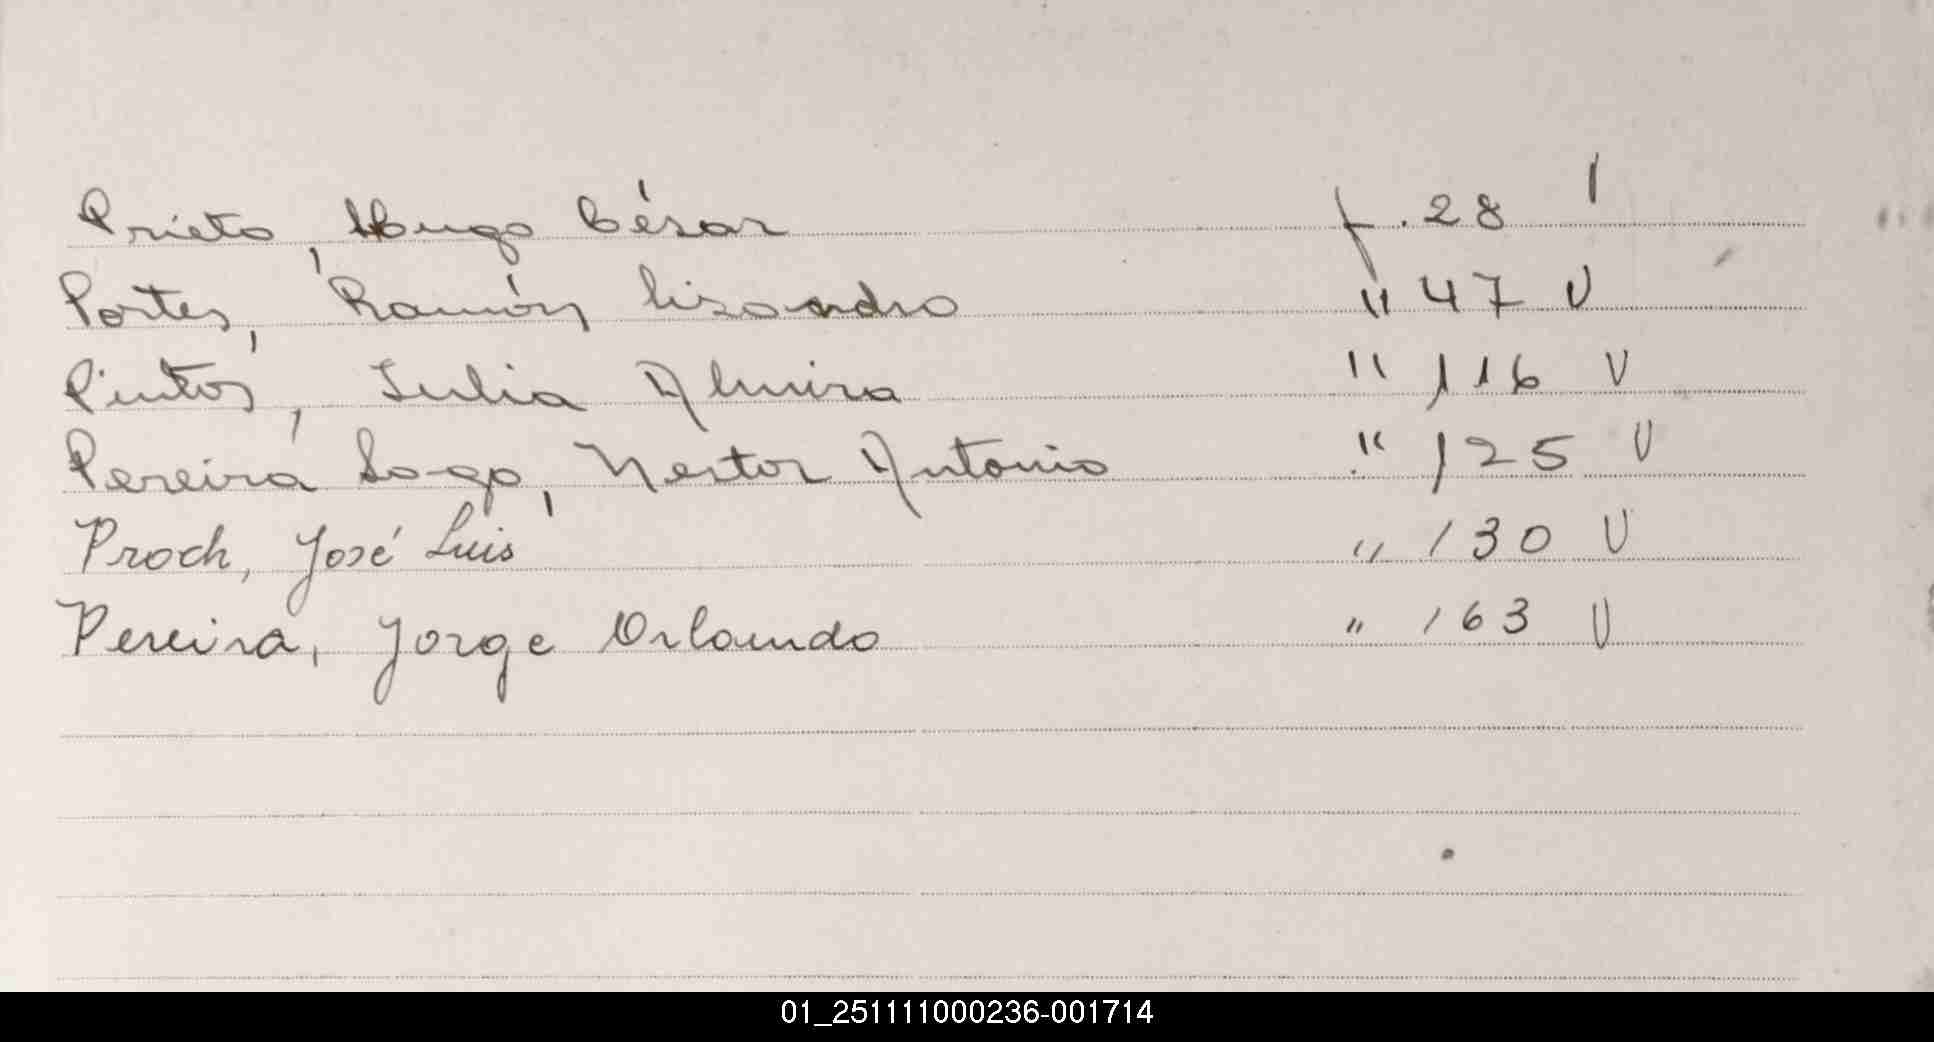 Prieto, Hugo César f. 28 |
Portes, Ramón Lisandro " 47 V
Pintos, Julia Almira " 116 V
Pereira Lago, Nestor Antonio " 125 V
Proch, José Luis " 130 V
Pereira, Jorge Orlando " 163 V
01_251111000236-001714